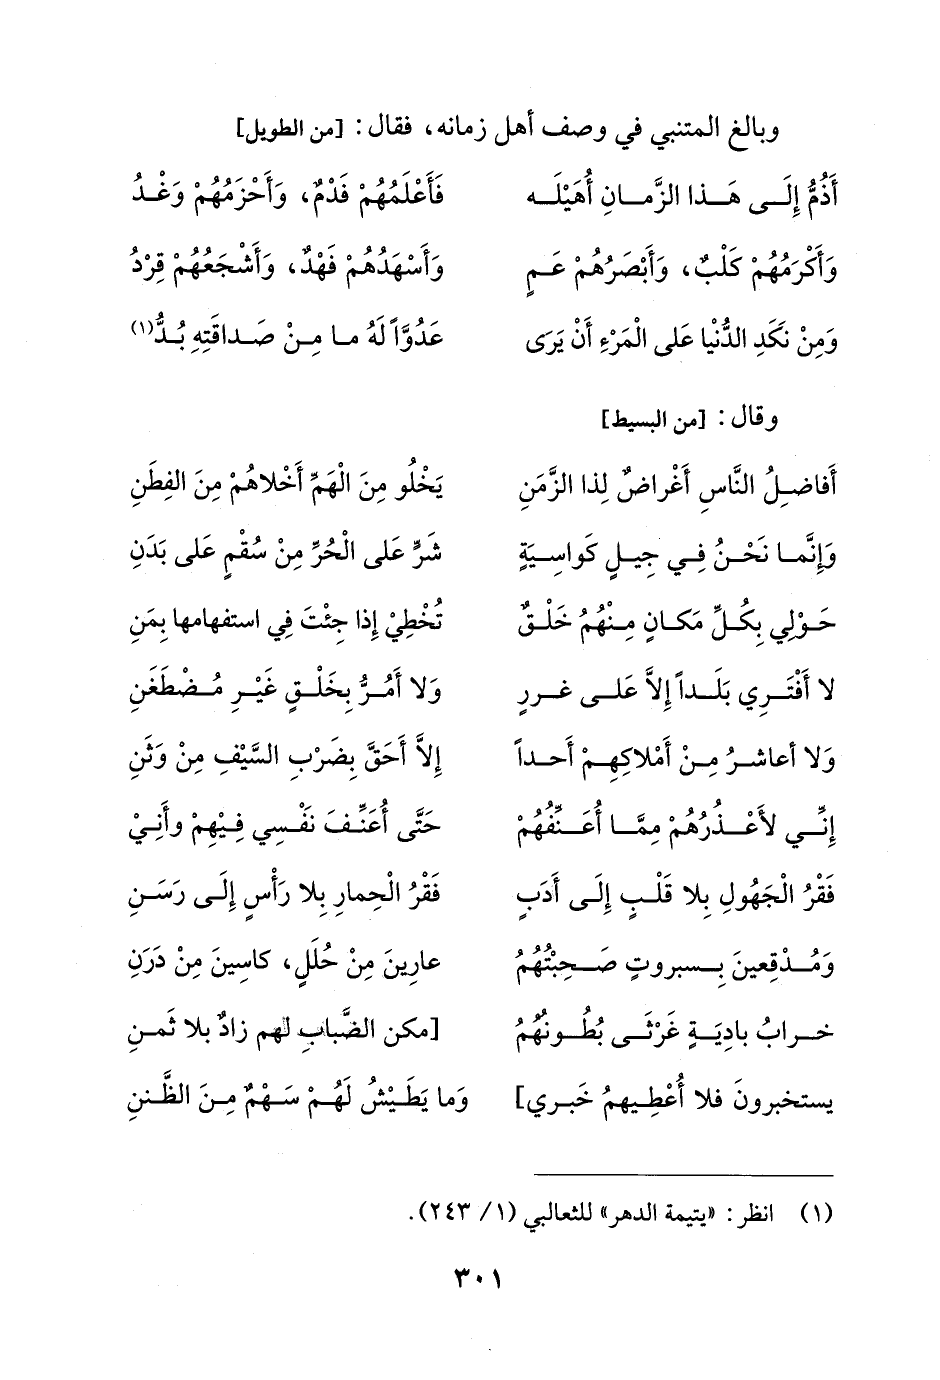 وبالغ المتنبي في وصف أهل زمانه، فقال: [من الطويل]
أَذُمُّ إِلَـى هَـذا الزَّمـانِ أُهَيْلَـه فَأَعْلَمُهُمْ فَدْمٌ، وَأَحْزَمُهُمْ وَغْـدُ
وَأَكْرَمُهُمْ كَلْبٌ، وَأَبْصَرُهُمْ عَـمٍ وَأَسْهَدُهُمْ فَهْدٌ، وَأَشْجَعُهُمْ قِرْدُ
وَمِنْ نَكَدِ الدُّنْيا عَلى الْمَرْءِ أَنْ يَرَى عَدُوَّاً لَهُ ما مِـنْ صَـداقَتِهِ بُـدُّ(١)
وقال: [من البسيط]
أَفاضِـلُ النَّاسِ أَغْراضٌ لِذا الزَّمَنِ يَخْلُو مِنَ الْهَمِّ أَخْلاهُمْ مِنَ الفِطَنِ
وَإِنَّمـا نَحْـنُ فِـي جِيـلٍ كَواسِـيَةٍ شَرٍّ عَلى الْحُرِّ مِنْ سُقْمٍ عَلى بَدَنِ
حَـوْلِي بِكُـلِّ مَكـانٍ مِـنْهُمُ خَلْـقٌ تُخْطِيْ إِذا جِئْتَ فِي استفهامها بِمَنِ
لا أَقْتَـرِي بَلَـداً إِلاَّ عَلـى غـررٍ وَلا أَمُـرُّ بِخَلْـقٍ غَيْـرِ مُـضْطَغَنِ
وَلا أعاشـرُ مِـنْ أَمْلاكِهِـمْ أَحـداً إِلاَّ أَحَقَّ بِضَرْبِ السَّيْفِ مِنْ وَثَنِ
إِنِّـي لأَعْـذُرُهُمْ مِمَّـا أُعَـنِّفُهُمْ حَتَّى أُعَنِّـفَ نَفْـسِي فِـيْهِمْ وأَنِـيْ
فَقْرُ الْجَهُولِ بِلا قَلْـبٍ إِلَى أَدَبٍ فَقْرُ الْحِمارِ بِلا رَأْسٍ إِلَـى رَسَـنِ
وَمُـدْقِعينَ بِـسبروتٍ صَـحِبْتُهُمُ عارِينَ مِنْ حُلَلٍ، كاسِينَ مِنْ دَرَنِ
خـرابُ بادِيَـةٍ غَرْثَـى بُطُـونُهُمُ [مكن الضَّبابِ لهم زادٌ بلا ثَمـنِ
يستخبرونَ فلا أُعْطِـيهمُ خَبـري] وَما يَطَيْشُ لَهُمْ سَـهْمٌ مِـنَ الظَّننِ
(١) انظر: «يتيمة الدهر» للثعالبي (١/ ٢٤٣).
٣٠١